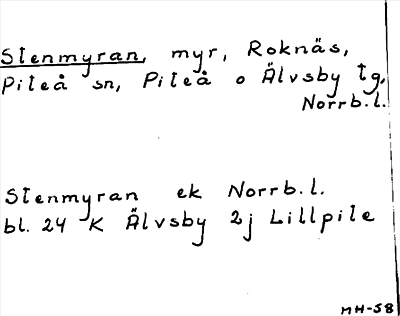 Stenmyran, myr, Roknäs,
Piteå sn, Piteå o Älvsby tg,
Norrb.l.
Stenmyran ek Norrb.l.
bl. 24 K Älvsby 2j Lillpite
MH-58